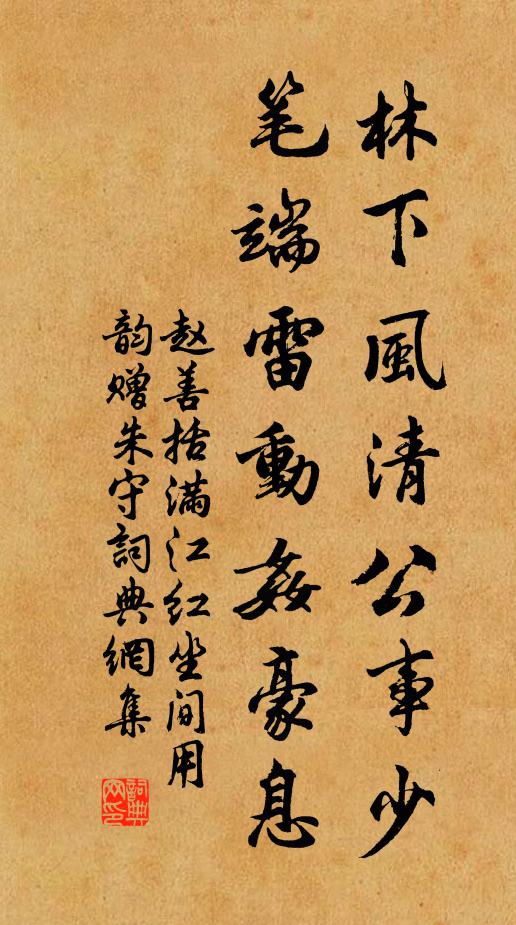 林下風清公事少
笔端雷動姦豪息
赵善括滿江红坐间用
韵赠朱守詞典網集
詞典
网印